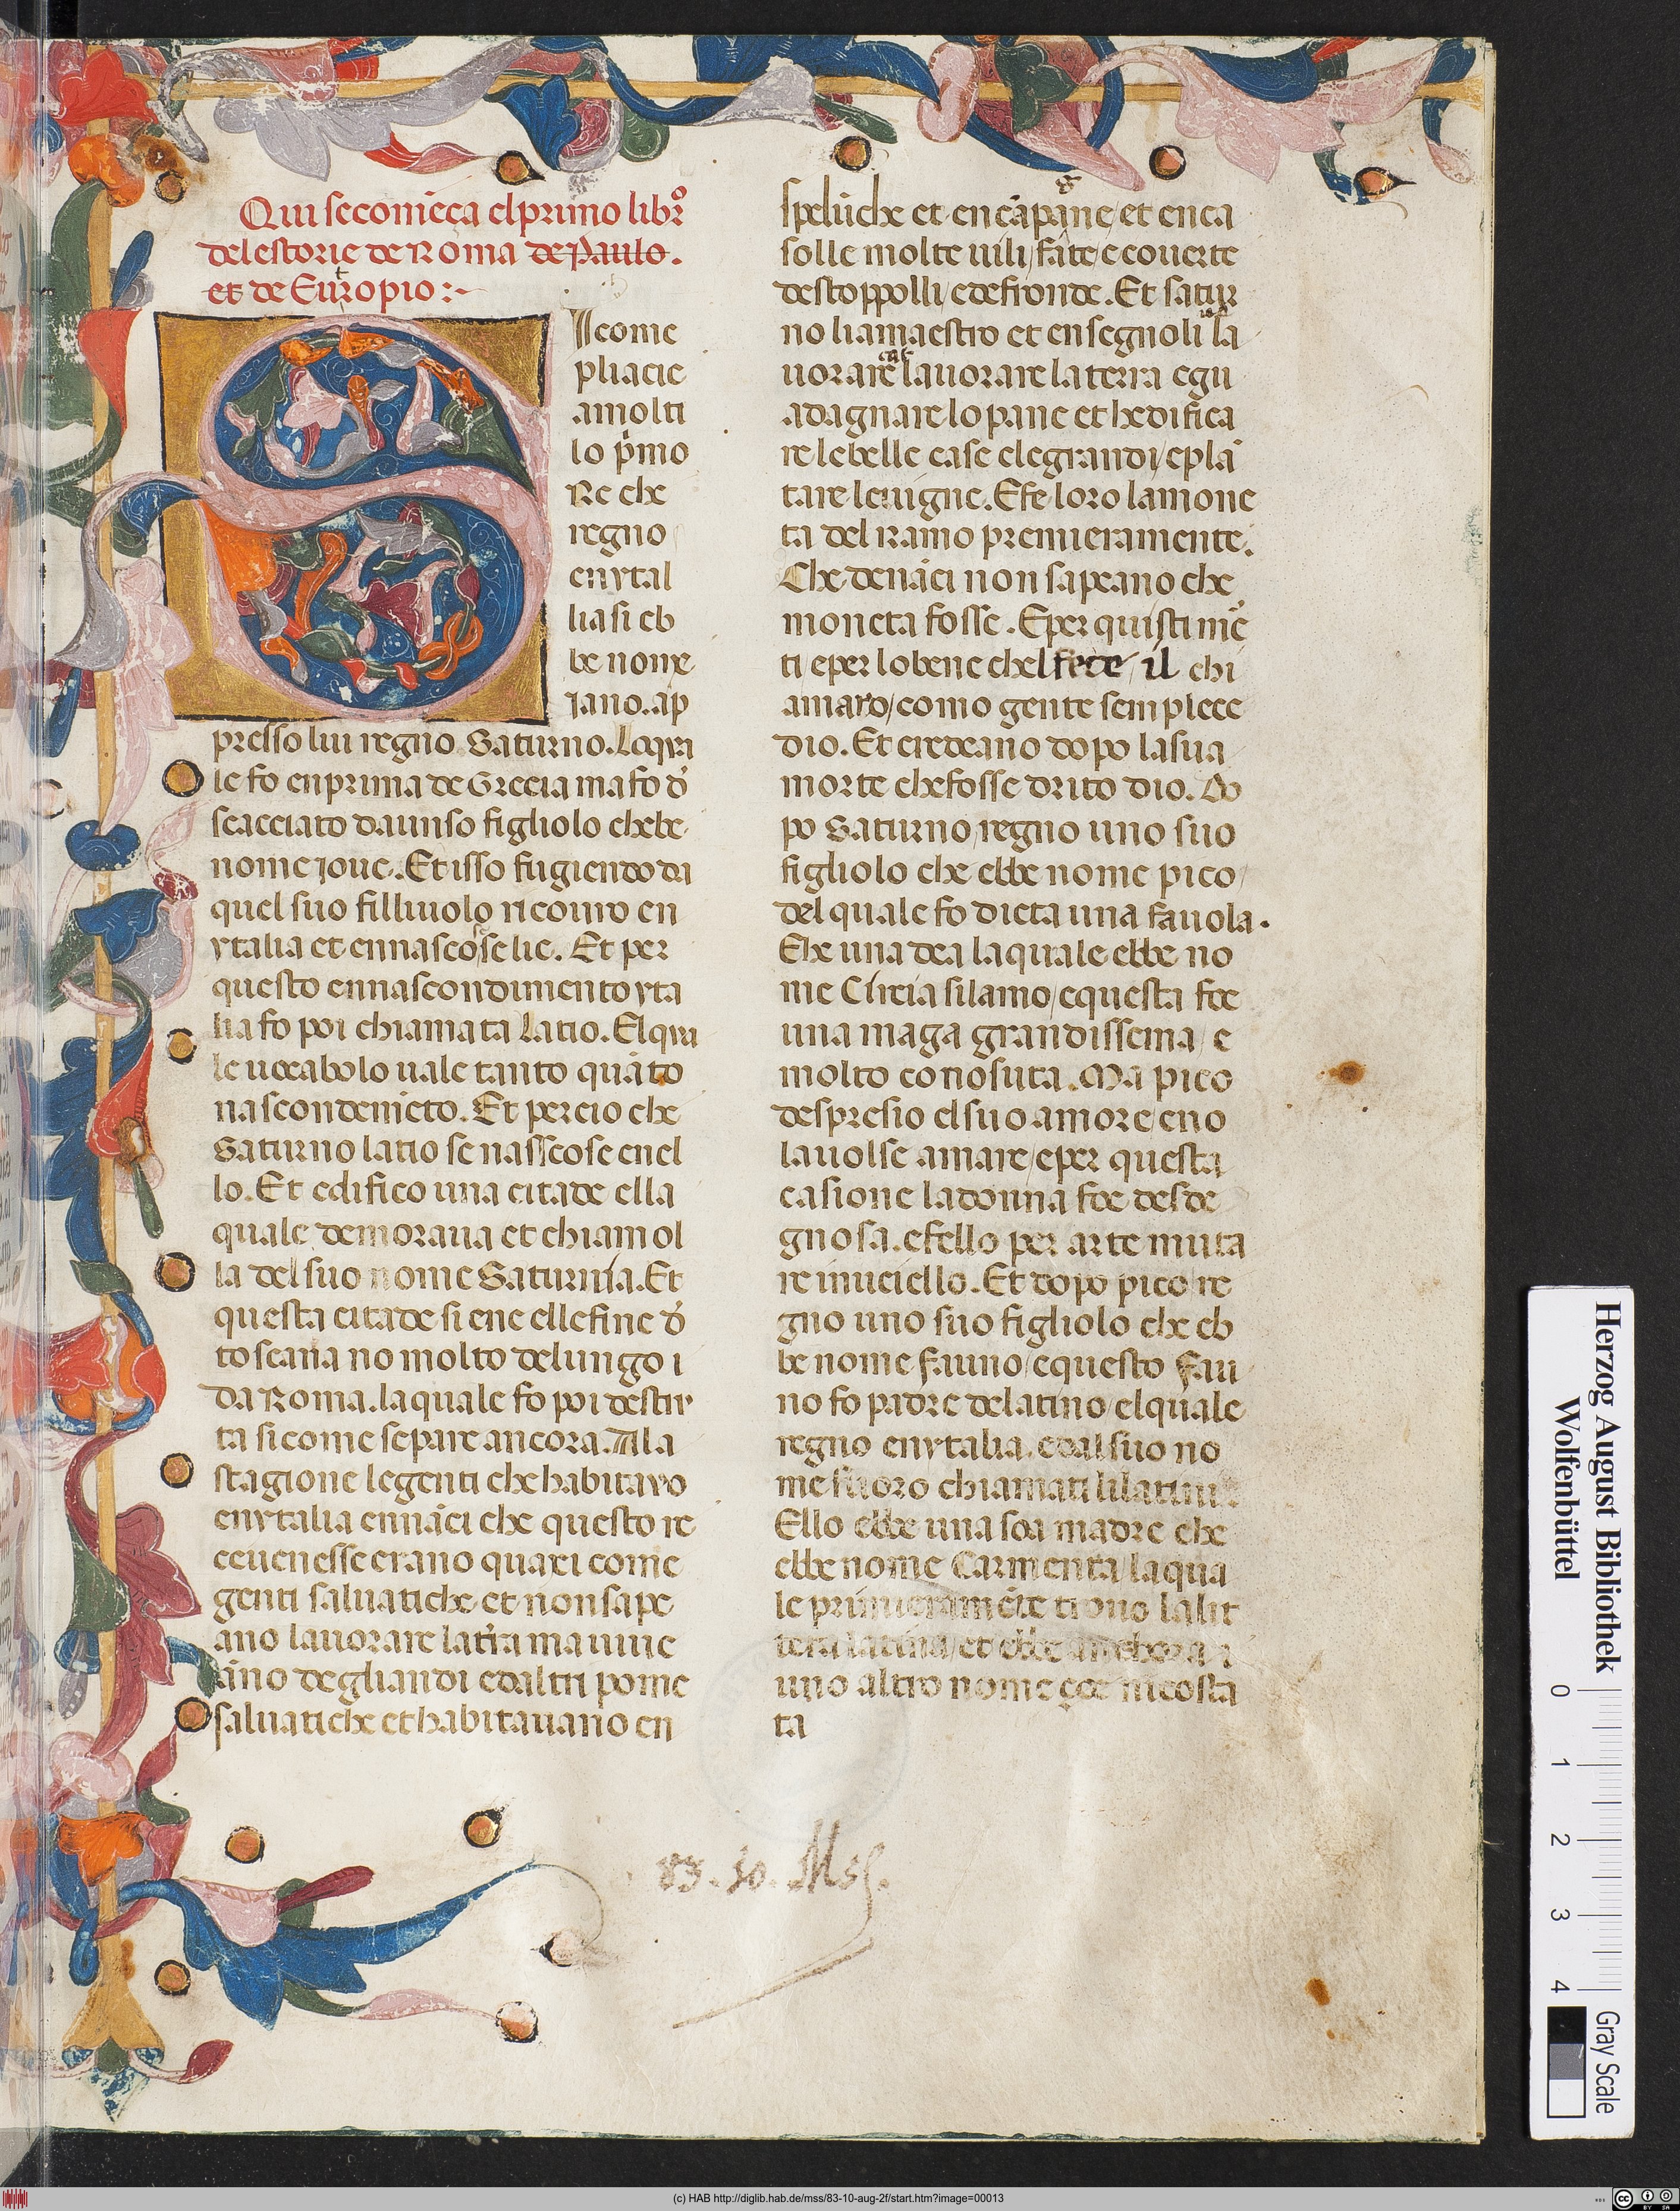 Qui se comēcа el primo libro
delestorie de Roma de Paulo.
et de Eutropio:~
Icome
pliacie
amolti
lo p̄mo
Re che
regno
enytal
lia si eb
be nome
iano.ap
presso lui regno Saturno.Loqua
le fo enprima de Grecia ma fo d̄
scacciato da unso figliolo chebe
nome ioue.Et isso fugiendo da
quel suo filliuolo ricouro en
ytalia et ennascosese lie. Et per
questo ennascondimento yta
lia fo poi chiamata Latio.Elqua
le uocabolo uale tanto quāto
nascondemēto. Et percio che
Saturno latio se nasscose enel
lo.Et edifico una citade ella
quale demoraua et chiamol
la del suo nome Saturnia.Et
questa citade si ene ellefine d̄
toscana no molto delungo i
da Roma.la quale fo poi destru
ta si come se pare ancora.Ala
stagione le genti che habitaro
enytalia ennāci che questo re
ceuenesse erano quaxi come
genti saluatiche et non sape
ano lauorare la tr̄ra ma uiue
ano de gliandi e daltri pome
saluatiche et habitauano en
spelūche et en cāpane/et en ca
solle molte uili/fate/e couerte
de stoppolli/e de fronde.Et satur
no li amaestro et ensegnoli la
uorare lauorare la terra e gu
adagnare lo pane et hedifica
re le belle case e le grandi/e plā
tare le uigne.E fe loro la mone
ta del ramo premieramente.
Che denāci non sapeano che
moneta fosse.E per quisti mē
ti e per lo bene chel fece/il chi
amaro/como gente semplece
dio.Et credeano dopo la sua
morte che fosse drito dio.Do
po Saturno/regno uno suo
figliolo che ebbe nome pico/
del quale fo dicta una fauola.
Che una dea la quale ebbe no
me Circia si lamo/e questa foe
una maga grandissema/e
molto conosuta.Ma pico
despresio el suo amore/e no
la uolse amare/e per questa
casione la donna foe desde
gnosa.e fello per arte muta
re in uciello.Et dopo pico/re
gno uno suo figliolo che eb
be nome fauno/e questo Fau
no fo padre de latino/elquale
regno enytalia.e dal suo no
me fuoro chiamati li latini
Ello ebbe una soa madre che
ebbe nome Carmenta/la qua
le primieramēte trouo la lit
tera latina/et ebbe anchora
uno altro nome çoe nicosta
ta
83.10. Mss.
Herzog August Bibliothek
Wolfenbüttel
0 1 2 3 4
Gray Scale
(c) HAB http://diglib.hab.de/mss/83-10-aug-2f/start.htm?image=00013